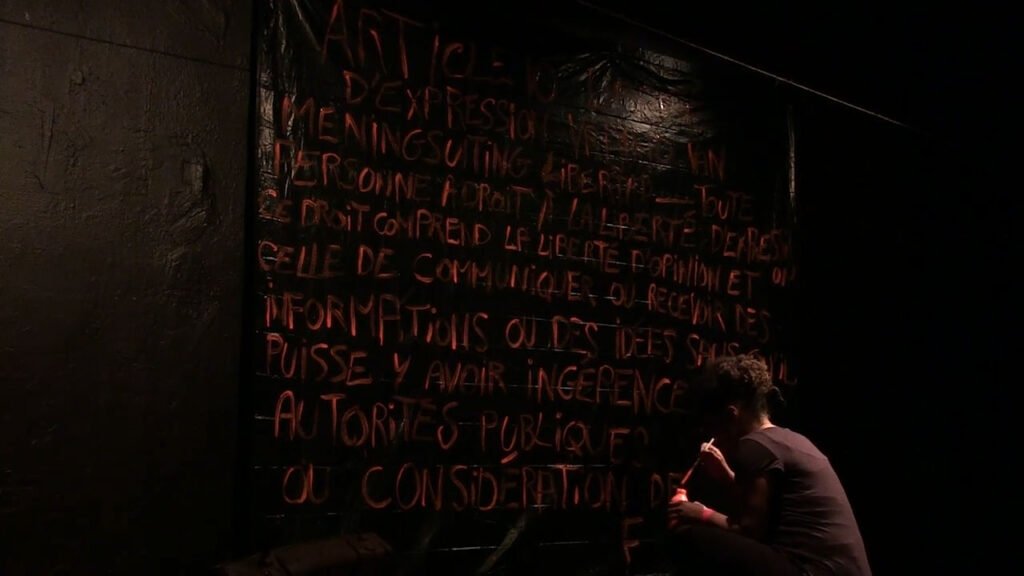 ARTICLE 10
D'EXPRESSION
MENINGSUITING LIBERTAD EN
PERSONNE A DROIT À LA LIBERTÉ D'EXPRESSI
CE DROIT COMPREND LA LIBERTÉ D'OPINION ET
CELLE DE COMMUNIQUER OU RECEVOIR DES
INFORMATIONS OU DES IDÉES SANS QU'IL
PUISSE Y AVOIR INGERENCE
AUTORITÉS PUBLIQUES
OU CONSIDÉRATION DE
F